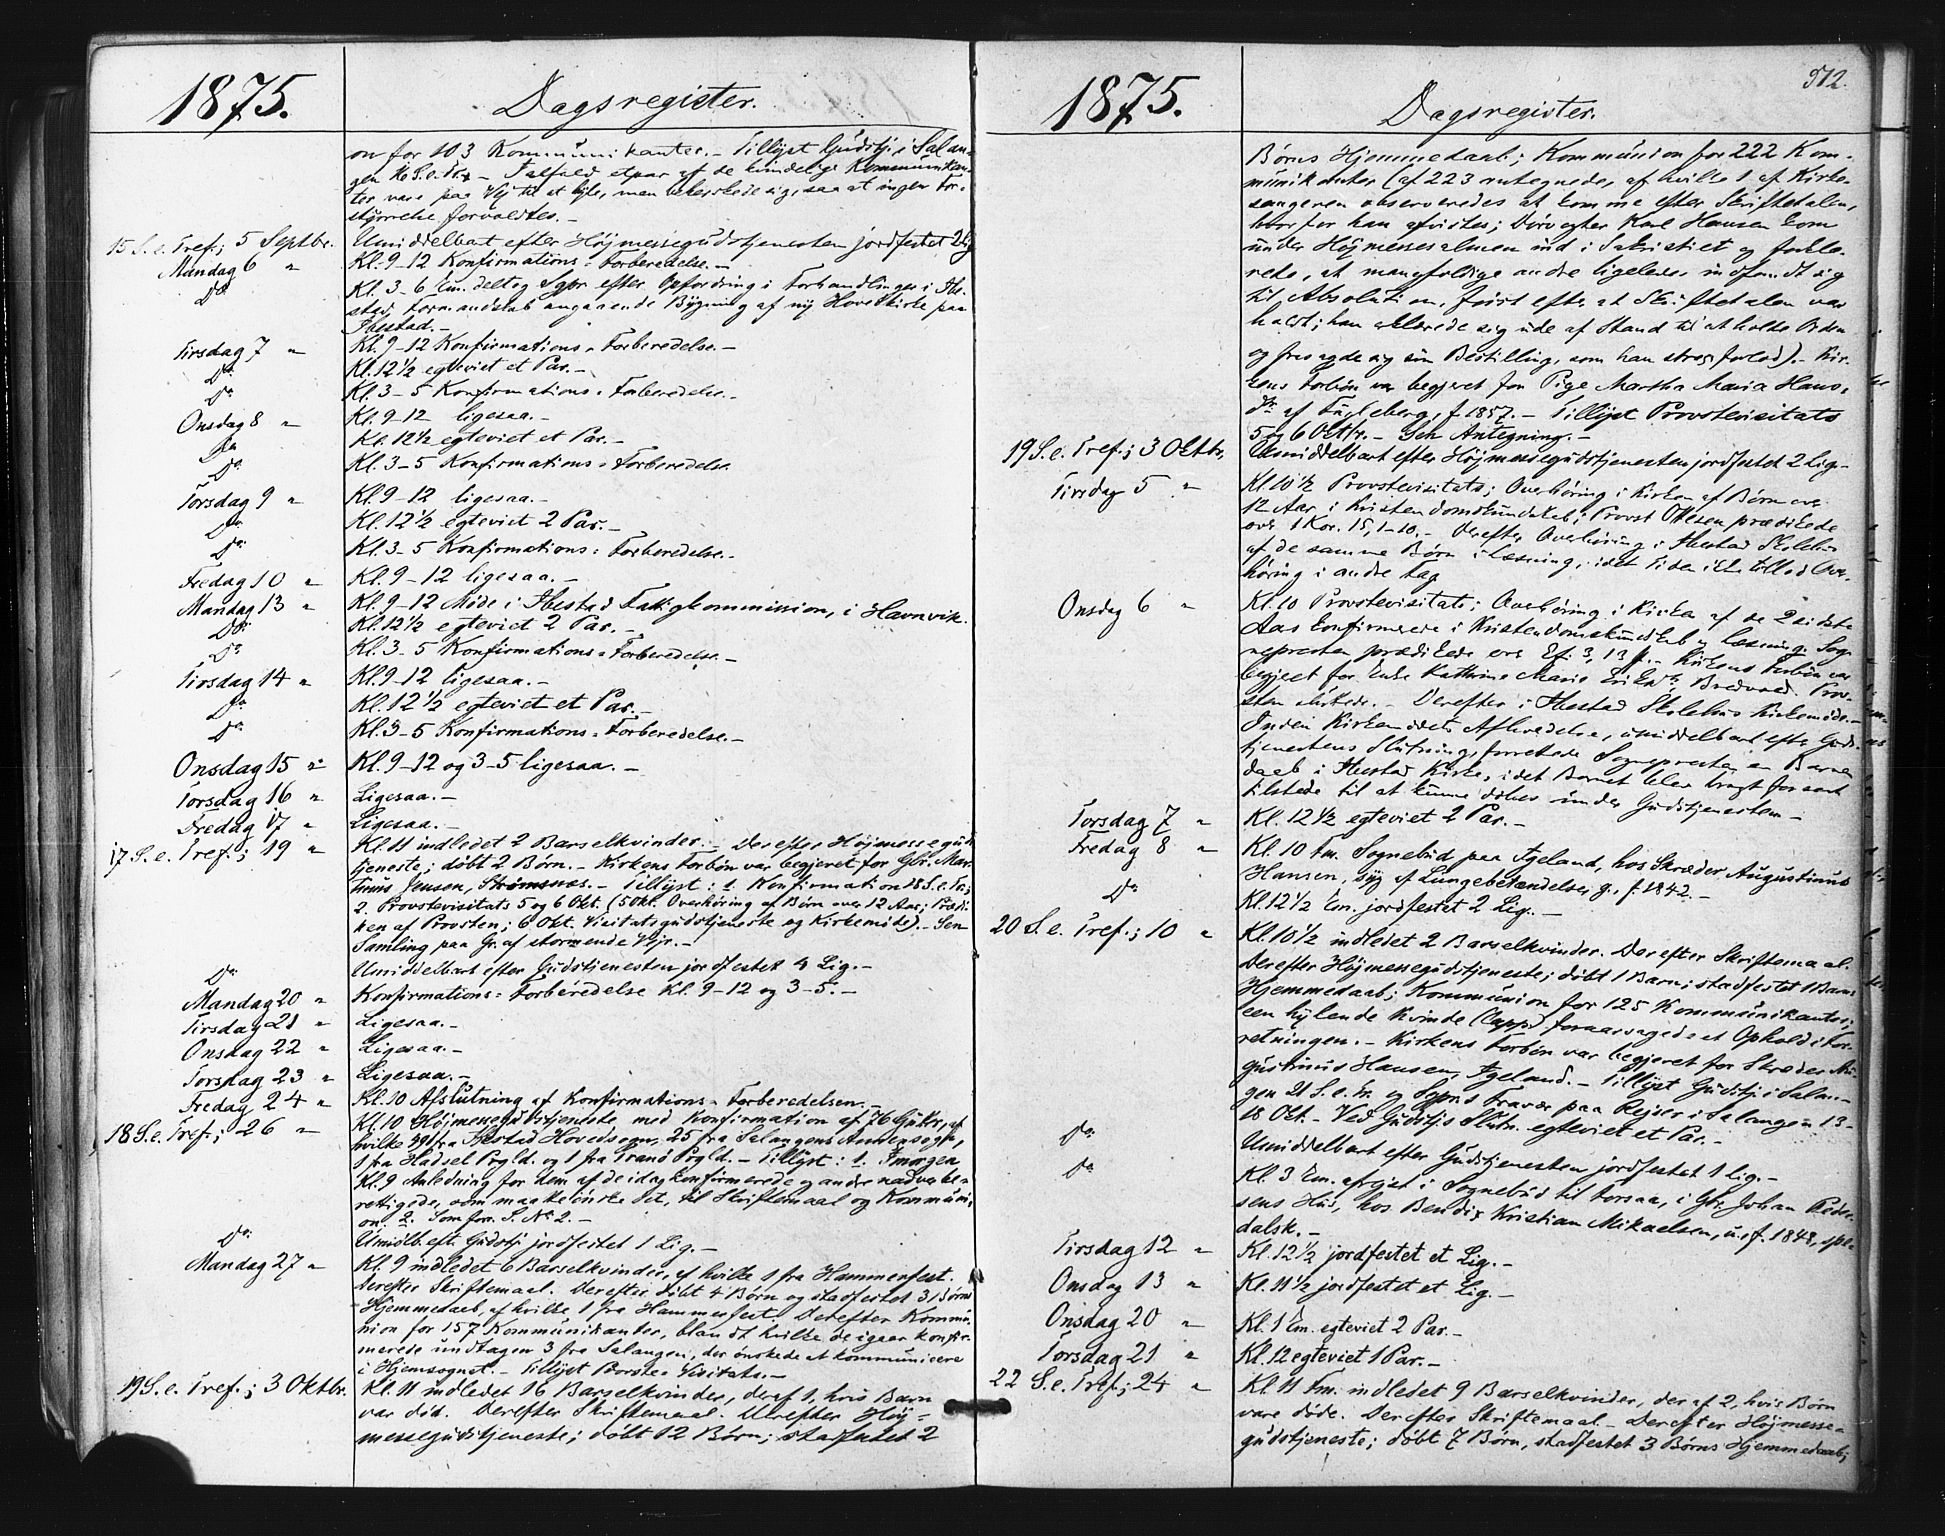 1875.
Dagsregister.
on for 103 Kommunikanter. - Tillyst Gudstj. i Salan-
gen 16 S. e. Tr. - Isalfald etpar af de kvindelige Kommunikan-
ter vare paa Vej til at hyle, men beherskede sig, saa at ingen For-
styrrelse forvoldtes. -
15 S. e. Tref.; 5 Septbr. Umiddelbart efter Højmessegudstjenesten jordfestet 2 Lig
Mandag 6 " Kl. 9-12 Konfirmations-Forberedelse. -
Do Kl. 3-6 Em. deltog Sgpr. efter Opfordring i Forhandlinger i Ibe-
stad Formandskab angaaende Bygning af ny Hovedkirke paa
Ibestad. -
Tirsdag 7 " Kl. 9-12 Konfirmations-Forberedelse. -
Do Kl. 12 1/2 egteviet et Par. -
Do Kl. 3-5 Konfirmations-Forberedelse. -
Onsdag 8 " Kl. 9-12 ligesaa. -
Do Kl. 12 1/2 egteviet et Par. -
Do Kl. 3-5 Konfirmations-Forberedelse
Torsdag 9 " Kl. 9-12 ligesaa. -
Do Kl. 12 1/2 egteviet 2 Par. -
Do Kl. 3-5 Konfirmations-Forberedelse. -
Fredag 10 " Kl. 9-12 ligesaa. -
Mandag 13 " Kl. 9-12 Møde i Ibestad Fattigkommission, i Havnvik.
Do Kl. 12 1/2 egteviet 2 Par. -
Do Kl. 3-5 Konfirmations-Forberedelse -
Tirsdag 14 " Kl. 9-12 ligesaa. -
Do Kl. 12 1/2 egteviet et Par. -
Do Kl. 3-5 Konfirmations-Forberedelse. -
Onsdag 15 " Kl. 9-12 og 3-5 ligesaa. -
Torsdag 16 " Ligesaa. -
Fredag 17 " Ligesaa. -
17 S. e. Tref.; 19 " Kl. 11 indledet 2 Barselkvinder. - Derefter Højmessegud-
tjeneste; døbt 2 Børn. - Kirkens Forbøn var begjeret for Gbr. Mar-
tinus Jensen, Strømsnæs. - Tillyst: 1. Konfirmation 18 S. e. Tr.;
2. Provstevisitats 5 og 6 Okt. (5 Okt. Overhøring af Børn over 12 Aar; Prædi-
ken af Provsten; 6 Okt. Visitatsgudstjeneste og Kirkemøde). - Sen
Samling paa Gr. af stormende Vejr. -
Do Umiddelbart efter Gudstjenesten jordfestet 4 Lig. -
Mandag 20 " Konfirmations-Forberedelse Kl. 9-12 og 3-5. -
Tirsdag 21 " Ligesaa. -
Onsdag 22 " Ligesaa. -
Torsdag 23 " Ligesaa. -
Fredag 24 " Kl. 10 Afslutning af Konfirmations-Forberedelsen. -
18 S. e. Tref.; 26 " Kl. 10 Højmessegudstjeneste med Konfirmation af 76 Gutter, af
hvilke fra Ibestad Hovedsogn, 25 fra Salangens Annexsogn,
1 fra Hadsel Prgld. og 1 fra Tranø Prgld. - Tillyst: 1. Imorgen
Kl. 9 Anledning for dem af de idag konfirmerede og andre nadverbe-
rettigede, som maatte ønske det, til Skriftemaal og Kommuni-
on. 2. Som for. S. No 2. -
Do Umidlb. eft. Gudstj. jordfestet 1 Lig. -
Mandag 27 " Kl. 9 indledet 6 Barselkvinder, af hvilke 1 fra Hammerfest.
Derefter Skriftemaal. Derefter døbt 4 Børn og stadfestet 3 Børns
Hjemmedaab, af hvilke 1 fra Hammerfest. Derefter Kommu-
nion for 157 Kommunikanter, blandt hvilke de igaar konfir-
merede undtagen 3 fra Salangen, der ønskede at kommunicere
i Hjemsognet. - Tillyst Provste-Visitats. -
19 S. e. Tref.; 3 Oktbr. Kl. 11 indledet 16 Barselkvinder, deraf 1, hvis Barn
var død. Derefter Skriftemaal. Derefter Høj-
messegudstjeneste; døbt 12 Børn; stadfestet 2
512.
1875.
Dagsregister.
Børns Hjemmedaab; Kommunion for 222 Kom-
munikanter (af 223 antegnede, af hvilke 1 af Kirke-
sangeren observeredes at komme efter Skriftetalen,
hvorfor han afvistes; Dørvogter Karl Hansen kom
under Højmessesalmen ind i Sakristiet og forkla-
rede, at mangfoldige andre ligeledes indfandt sig
til Absolution, først efter at Skriftetalen var
holdt; han erklærede sig ude af Stand til at holde Orden
og fresagde sig sin Bestilling, som han strax forlod). - Kir-
kens Forbøn var begjeret for Pige Martha Maria Hans-
Dr. af Fugleberg, f. 1857. - Tillyst Provstevisitats
5 og 6 Oktbr. - Sen Antegning. -
19 S. e. Tref.; 3 Oktbr. Umiddelbart efter Højmessegudstjenesten jordfestet 2 Lig. -
Tirsdag 5 " Kl. 10 1/2 Provstevisitats; Overhøring i Kirken af Børn over
12 Aar i Kristendomskundskab; Provst Ottesen prædikede
over 1 Kor. 15, 1-10. - Derefter Overhøring i Ibestad Skolehus
af de samme Børn i Læsning, idet Tiden ikke tillod Over-
høring i andre Fag
Onsdag 6 " Kl. 10 Provstevisitats; Overhøring i Kirken af de 2 sidste
Aars Konfirmerede i Kristendomskundskab og Læsning. Sog-
nepresten prædikede over Ef. 3, 13 ff. - Kirkens Forbøn var
begjeret for Enke Kathrine Marie Eriksdr. Bredvad. Prov-
sten sluttede. - Derefter i Ibestad Skolehus Kirkemøde. -
Inden Kirkemødets Afholdelse, umiddelbart efter Guds-
tjenestens Slutning, forrettede Sognepresten en Barne-
daab i Ibestad Kirke, idet Barnet blev bragt for sent
tilstede til at kunne døbes under Gudstjenesten -
Torsdag 7 " Kl. 12 1/2 egteviet 2 Par. -
Fredag 8 " Kl. 10 Fm. Sognebud paa Ageland, hos Skræder Augustinus
Hansen, syg af Lungebetændelse, g., f. 1842. -
Do Kl. 12 1/2 Em. jordfestet 2 Lig. -
20 S. e. Tref.; 10 " Kl. 10 1/2 indledet 2 Barselkvinder. Derefter Skriftemaal.
Derefter Højmessegudstjeneste; døbt 1 Barn; stadfestet 1 Barns
Hjemmedaab; Kommunion for 125 Kommunikanter;
een hylende Kvinde (Lapp.) foraarsagede et Ophold i For-
retningen. - Kirkens Forbøn var begjeret for Skræder Au-
gustinus Hansen, Ageland. - Tillyst Gudstj. i Salan-
gen 21 S. e. Tr. og Sgprs Fravær paa Rejser i Salangen 13-
18 Okt. - Ved Gudstjs Slutn. egteviet et Par. -
Do Umiddelbart efter Gudstjenesten jordfestet 1 Lig. -
Do Kl. 3 Em. afrejst i Sognebud til Forsaa, i Gbr. Johan Peder-
sens Hus, hos Bendix Kristian Mikaelsen, u., f. 1848, spe-
dalsk. -
Tirsdag 12 " Kl. 12 1/2 jordfestet et Lig. -
Onsdag 13 " Kl. 11 1/2 jordfestet et Lig. -
Onsdag 20 " Kl. 1 Em. egteviet 2 Par. -
Torsdag 21 " Kl. 12 egteviet 1 Par. -
22 S. e. Tref.; 24 " Kl. 11 Fm. indledet 9 Barselkvinder, deraf 2, hvis Børn
vare døde. Derefter Skriftemaal. - Derefter Højmesse-
gudstjeneste; døbt 7 Børn, stadfestet 3 Børns Hjemmedaab;